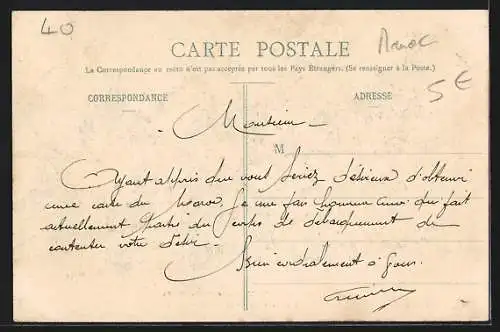 40
Maroc
CARTE POSTALE
La Correspondance au recto n'est pas acceptée par tous les Pays Étrangers. (Se renseigner à la Poste.)
5€
CORRESPONDANCE
ADRESSE
Monsieur
M
Ayant appris que vous seriez désireux d'obtenir
une carte du Maroc, je me fais honneur du fait
actuellement partie du corps de débarquement de
contenter votre désir.
Bien cordialement à vous